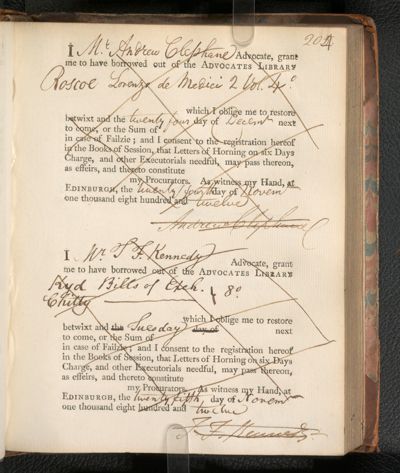 204
I Mr. Andrew Clephane Advocate, grant
me to have borrowed out of the ADVOCATES LIBRARY
Roscoe Lorenzo de Medici 2 Vol. 4o
which I oblige me to restore
betwixt and the twenty four day of Decemr next
to come, or the Sum of
in case of Failzie; and I consent to the registration hereof
in the Books of Session, that Letters of Horning on six Days
Charge, and other Executorials needful, may pass thereon,
as effeirs, and thereto constitute
my Procurators. As witness my Hand, at
EDINBURGH, the twenty fourth day of Novemr
one thousand eight hundred and twelve
Andrew Clephane
I Mr. T F Kennedy Advocate, grant
me to have borrowed out of the ADVOCATES LIBRARY
Kyd Bills of Exch. 8o
Chitty
which I oblige me to restore
betwixt and the Tuesday day of next
to come, or the Sum of
in case of Failzie; and I consent to the registration hereof
in the Books of Session, that Letters of Horning on six Days
Charge, and other Executorials needful, may pass thereon,
as effeirs, and thereto constitute
my Procurators. As witness my Hand, at
EDINBURGH, the twenty fifth day of Novemr
one thousand eight hundred and twelve
T. F. Kennedy